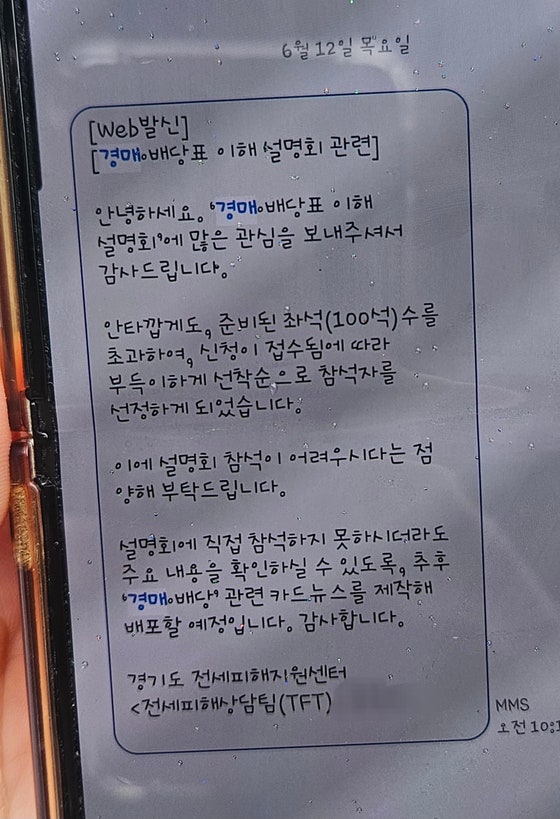 6월 12일 목요일
[Web발신]
[경매•배당표 이해 설명회 관련]
안녕하세요. '경매•배당표 이해
설명회'에 많은 관심을 보내주셔서
감사드립니다.
안타깝게도, 준비된 좌석(100석)수를
초과하여, 신청이 접수됨에 따라
부득이하게 선착순으로 참석자를
선정하게 되었습니다.
이에 설명회 참석이 어려우시다는 점
양해 부탁드립니다.
설명회에 직접 참석하지 못하시더라도
주요 내용을 확인하실 수 있도록, 추후
'경매•배당' 관련 카드뉴스를 제작해
배포할 예정입니다. 감사합니다.
경기도 전세피해지원센터
<전세피해상담팀(TFT)
MMS
오전